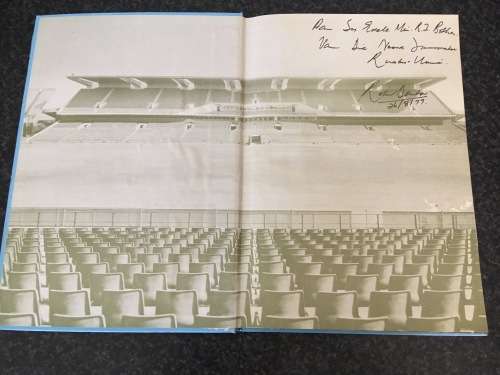 Aan Sy Edele Mnr. R.F. Botha
Van Die Noord Transvaalse
Rugby-Unie.
26/8/77.